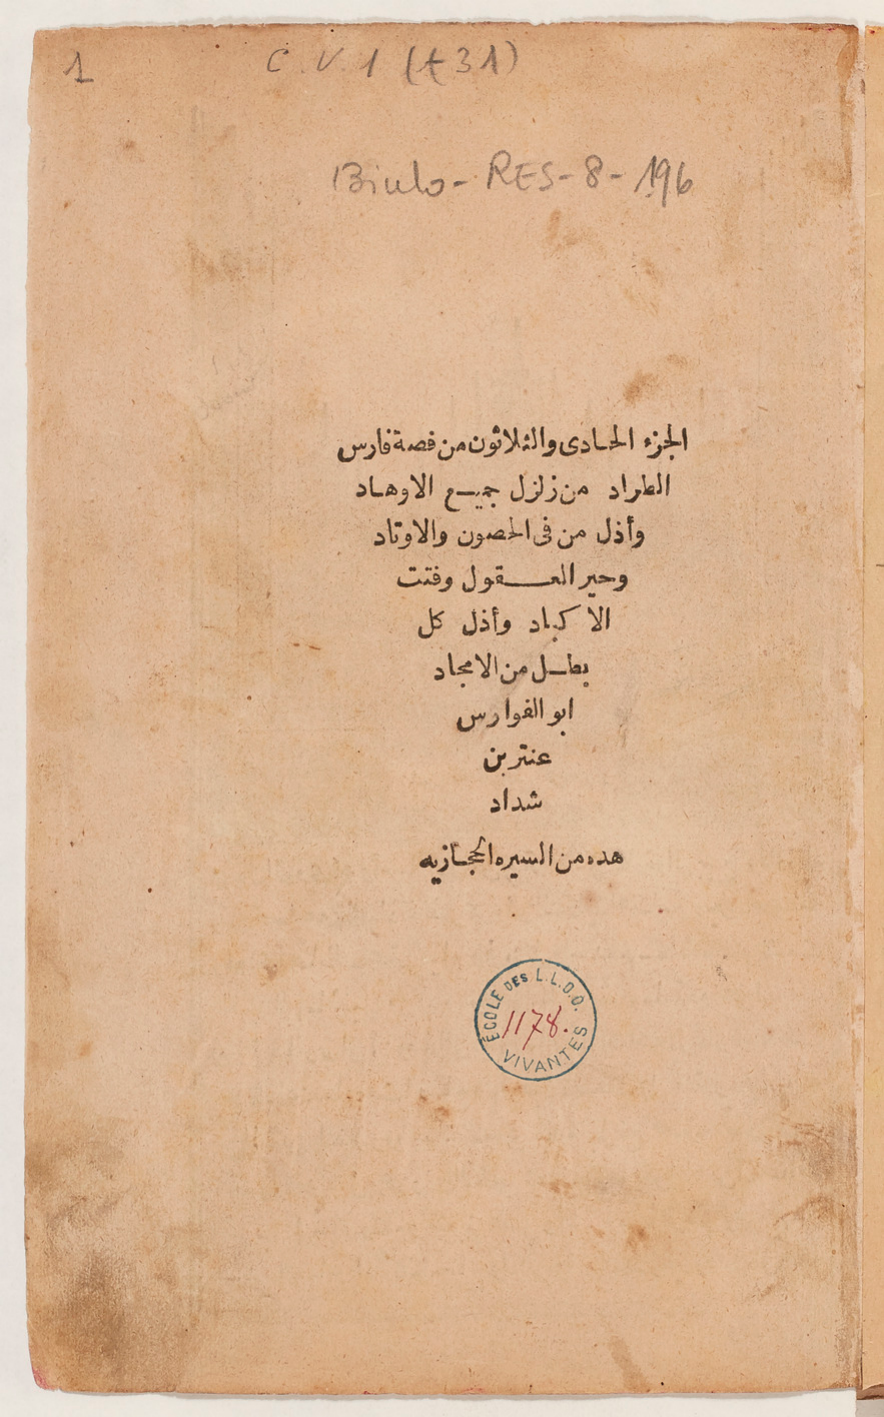 1
C. V. 1 (t 31)
Biulo - RES - 8 - 196
الجزء الحادى والثلاثون من قصة فارس
الطراد من زلزل جميع الاوهاد
وأذل من فى الحصون والاوتاد
وحير العقول وفتت
الاكباد وأذل كل
بطل من الامجاد
ابو الفوارس
عنتر بن
شداد
هده من السيره الحجازيه
ÉCOLE DES L.L.O.O.
1178.
VIVANTES